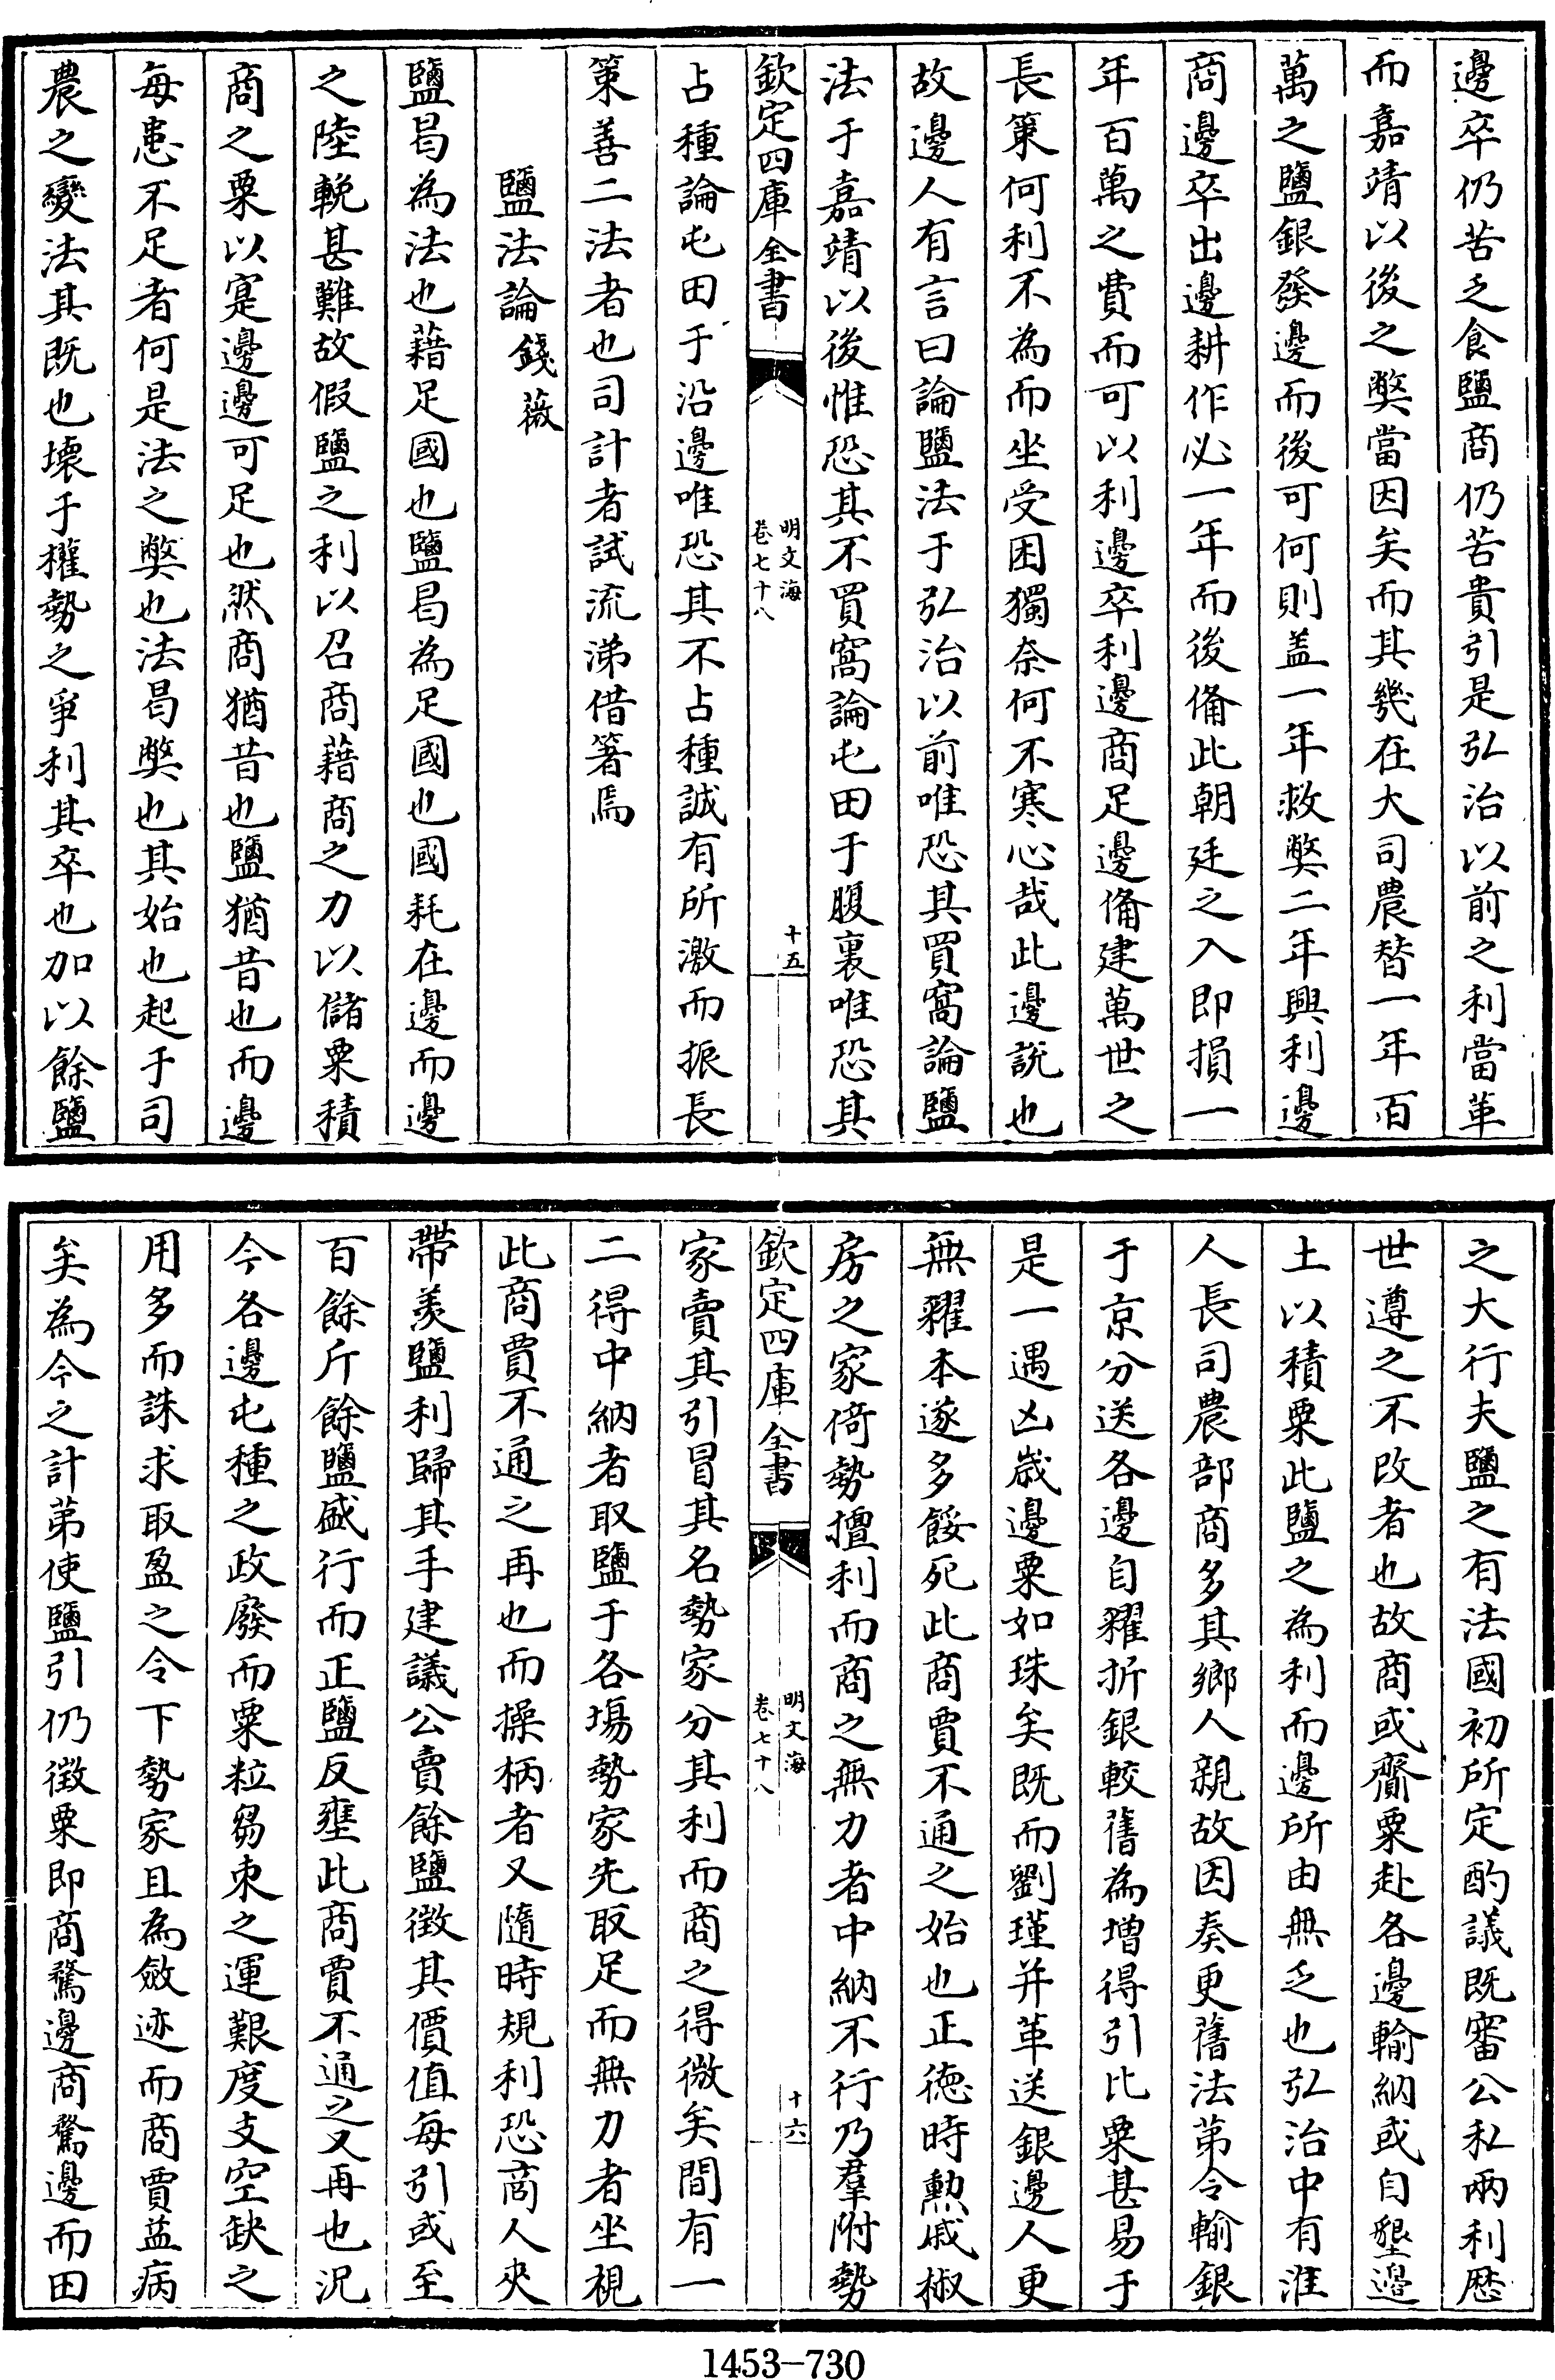 邊卒仍苦乏食鹽商仍苦貴引是弘治以前之利當革
而嘉靖以後之弊當因矣而其幾在大司農替一年百
萬之鹽銀發邊而後可何則盖一年救弊二年興利邊
商邊卒出邊耕作必一年而後備此朝廷之入即損一
年百萬之費而可以利邊卒利邊商足邊備建萬世之
長策何利不為而坐受困獨奈何不寒心哉此邊說也
故邊人有言曰論鹽法于弘治以前唯恐其買窩論鹽
法于嘉靖以後惟恐其不買窩論屯田于腹裏唯恐其
欽定四庫全書
明文海
卷七十八
十五
占種論屯田于沿邊唯恐其不占種誠有所激而振長
策善二法者也司計者試流涕借箸焉
鹽法論 錢薇
鹽曷為法也藉足國也鹽曷為足國也國耗在邊而邊
之陸輓甚難故假鹽之利以召商藉商之力以儲粟積
商之粟以寔邊邊可足也然商猶昔也鹽猶昔也而邊
每患不足者何是法之弊也法曷弊也其始也起于司
農之變法其既也壞于權勢之爭利其卒也加以餘鹽
之大行夫鹽之有法國初所定酌議既審公私兩利歴
世遵之不改者也故商或齎粟赴各邊輸納或自墾邊
土以積粟此鹽之為利而邊所由無乏也弘治中有淮
人長司農部商多其鄉人親故因奏更舊法第令輸銀
于京分送各邊自糴折銀較舊為增得引比粟甚易于
是一遇凶歲邊粟如珠矣既而劉瑾并革送銀邊人更
無糴本遂多餒死此商賈不通之始也正徳時勲戚椒
房之家倚勢擅利而商之無力者中納不行乃羣附勢
欽定四庫全書
明文海
卷七十八
十六
家賣其引冒其名勢家分其利而商之得微矣間有一
二得中納者取鹽于各場勢家先取足而無力者坐視
此商賈不通之再也而操柄者又隨時規利恐商人夾
帶羨鹽利歸其手建議公賣餘鹽徴其價值每引或至
百餘斤餘鹽盛行而正鹽反壅此商賈不通之又再也況
今各邊屯種之政廢而粟粒芻束之運艱度支空缺之
用多而誅求取盈之令下勢家且為斂迹而商賈益病
矣為今之計第使鹽引仍徴粟即商騖邊商騖邊而田
1453-730